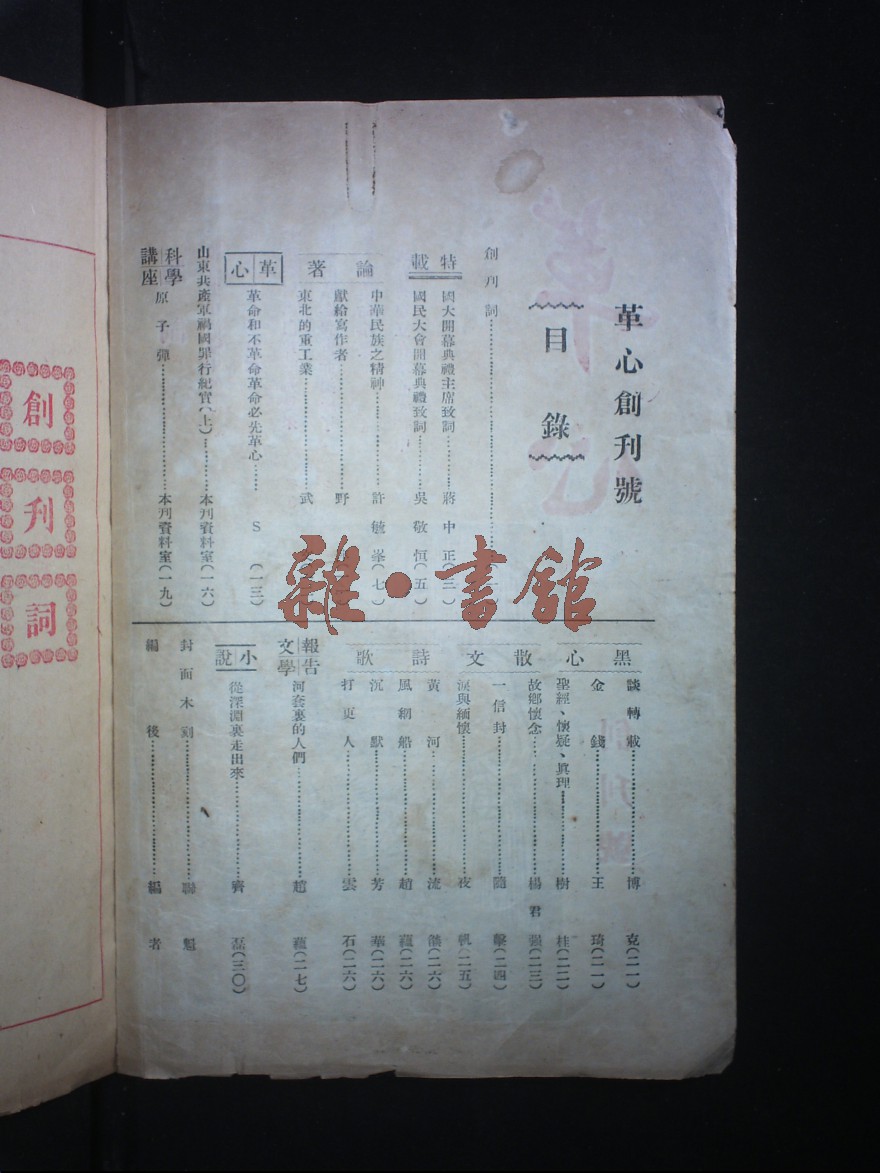 革心創刊號
目錄
創刊詞
特載
國大開幕典禮主席致詞 蔣中正(三)
國民大會開幕典禮致詞 吳敬恒(五)
論著
中華民族之精神 許毓峯(七)
獻給寫作者 野
東北的重工業 武
革心
革命和不革命革命必先革心 S (一三)
山東共產軍禍國罪行紀實(上) 本刊資料室(一六)
科學講座
原子彈 本刊資料室(一九)
黑心
談轉載 博克(二一)
金錢 王琦(二一)
聖經、懷疑、真理 樹桂(二二)
散文
故鄉懷念 楊君強(二三)
一信封 隨擊(二四)
淚與緬懷 夜帆(二五)
詩歌
黃河 流螢(二六)
風網船 趙蘊(二六)
沉默 芳華(二六)
打更人 雲石(二六)
報告文學
河套裏的人們 趙蘊(二七)
小說
從深淵裏走出來 齊磊(三〇)
封面木刻 聯魁
編後 編者
雜·書館
創刊詞